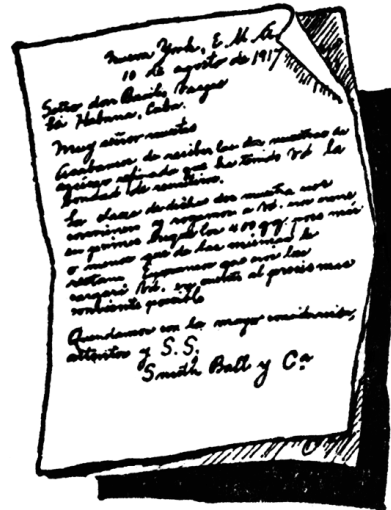 Nueva York, E. U. A.
10 de agosto de 1917
Señor don Basilio Vargas
La Habana, Cuba.
Muy señor nuestro
Acabamos de recibir las dos muestras de
azúcar refinado que ha tenido Vd. la
bondad de remitirnos.
La clase de dicha muestra nos
conviene y rogamos a Vd. nos
en primer los 400 qq. más
o menos que de las mismas le
restan. Esperamos que nos las
cargará Vd. en cuenta al precio mas
conveniente posible
Quedamos con la mayor consideración,
atentos y S. S.
Smith Ball y Ca